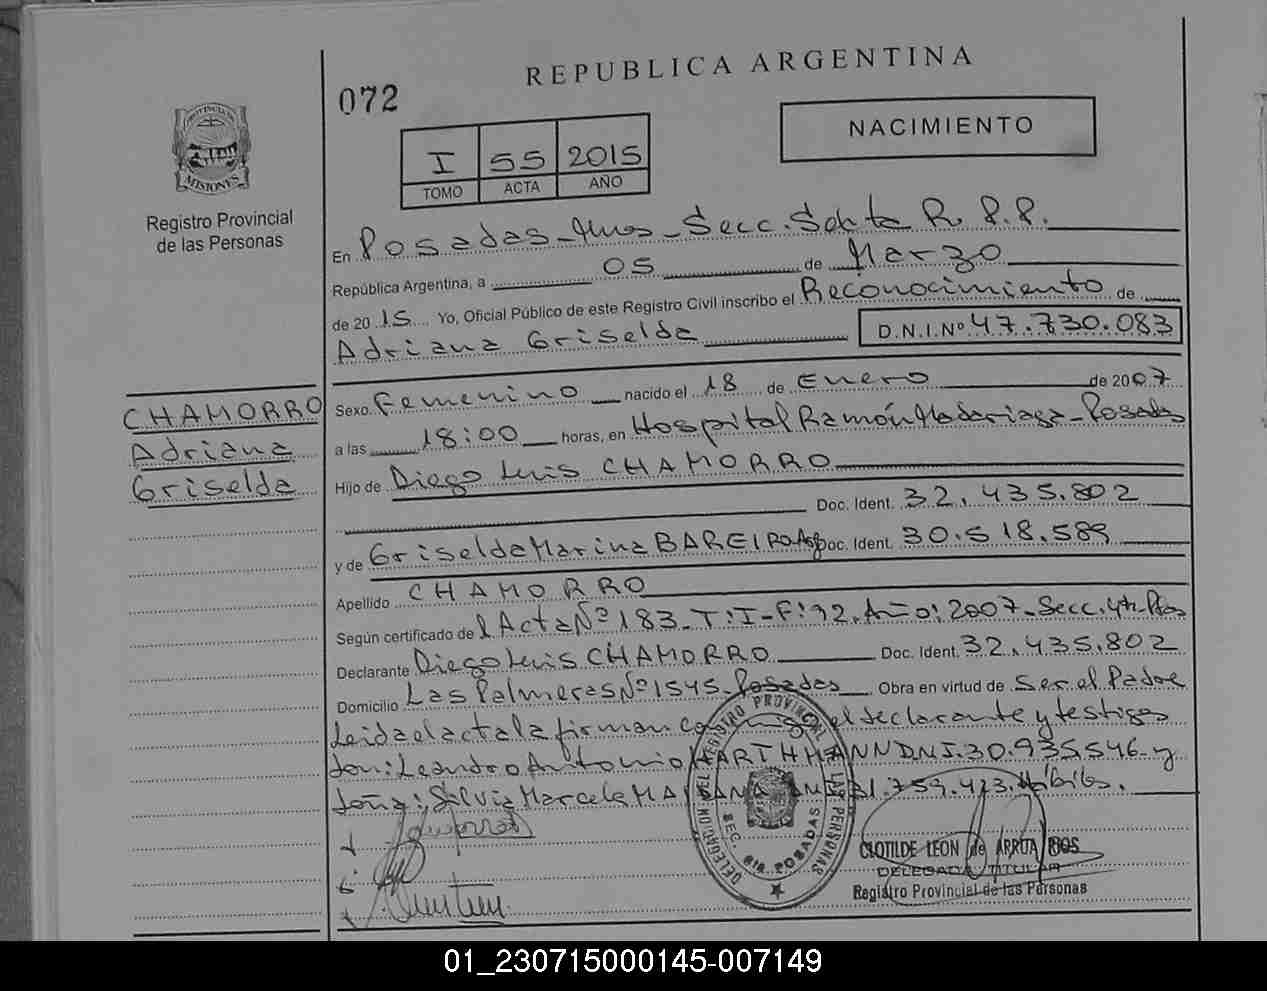 REPUBLICA ARGENTINA
072
NACIMIENTO
I 55 2015
TOMO ACTA AÑO
PROVINCIA DE
MISIONES
Registro Provincial
de las Personas
En Posadas - Mnes - Secc. Sexta R. P. P.
República Argentina, a 05 de Marzo
de 2015 Yo, Oficial Público de este Registro Civil inscribo el Reconocimiento de
Adriana Griselda D.N.I.Nº 47.730.083
CHAMORRO
Adriana
Griselda
Sexo Femenino nacido el 18 de Enero de 2007
a las 18:00 horas, en Hospital Ramón Madariaga - Posadas
Hijo de Diego Luis CHAMORRO
Doc. Ident. 32.435.802
y de Griselda Marina BAREIRO Arg Doc. Ident. 30.518.589
Apellido CHAMORRO
Según certificado del Acta Nº 183 - T: I - F: 92. Año: 2007 - Secc. 4ta. Pdas
Declarante Diego Luis CHAMORRO Doc. Ident. 32.435.802
Domicilio Las Palmeras Nº 1545 - Posadas Obra en virtud de Ser el Padre
Leida el acta la firman conmigo el declarante y testigos
don: Leandro Antonio HARTHMANN DNI. 30.935546 y
doña: Silvia Marcela DNI 31.759.423. Hábiles.
DELEGAC. NO. DEL REGISTRO PROVINCIAL DE LAS PERSONAS
SEC. 6ta. POSADAS
CLOTILDE LEON de ARRUA RIOS
DELEGADA TITULAR
Registro Provincial de las Personas
01_230715000145-007149